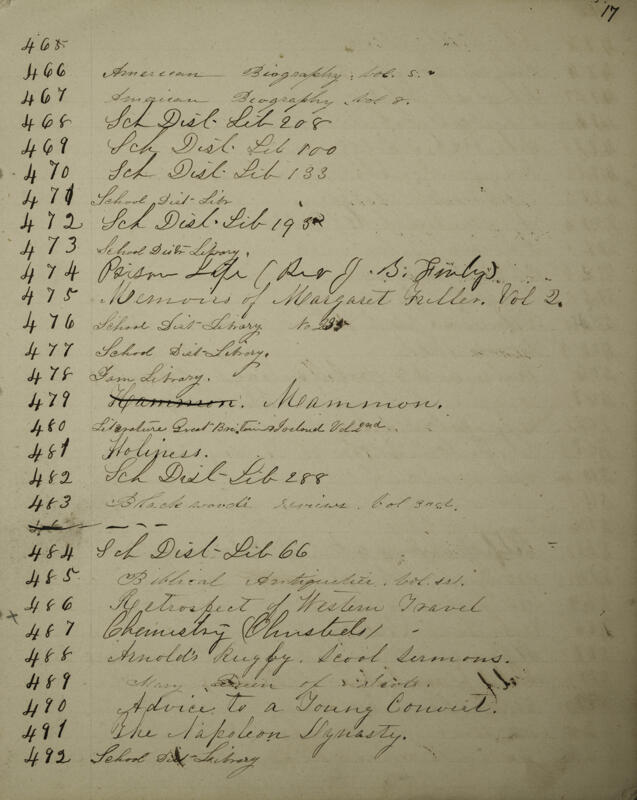 17
465
466 American Biography. Vol. 5.
467 Amgican Beography. Vol 8.
468 Sch Dist. Lib 208
469 Sch Dist. Lib 100
470 Sch Dist. Lib 133
471 School Dist-Libr
472 Sch Dist. Lib 19
473 School Distr Library.
474 Prison Life (Rev J. B. Finly).
475 Memoirs of Margaret Fuller. Vol 2.
476 School Dist-Library No 235
477 School Dist-Library.
478 Fam Library.
479 Hammon. Mammon.
480 Literature Great Britain & Vol 2nd
481 Holiness.
482 Sch Dist-Lib 288
483 Blackwoods reviews. Vol 3rd.
484 Sch Dist-Lib 66
485 Biblical Antiquetie. Vol. 1st.
486 Retrospect of Western Travel
487 Chemistry (Olmsteds)
488 Arnold's Rugby. Scool Sermons.
489 Mary Queen of
490 Advice to a Young Convert.
491 The Napoleon Dynasty.
492 School Dist-Library